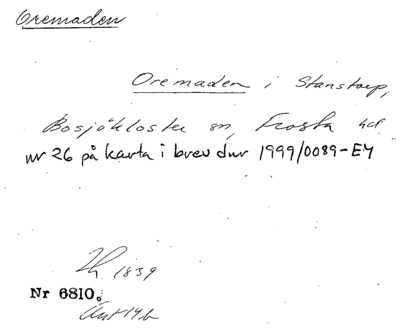 Oremaden
Oremaden i Stanstorp,
Bosjökloster sn, Frosta hd
nr 26 på karta i brev dnr 1999/0089-EY
1839
Nr 6810.